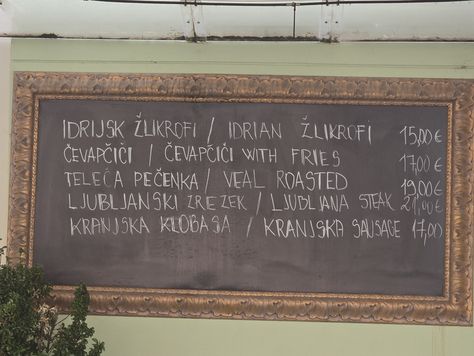 IDRIJSK ŽLIKROFI / IDRIAN ŽLIKROFI 15,00 €
ČEVAPČIČI / ČEVAPČIČI WITH FRIES 17,00 €
TELEČA PEČENKA / VEAL ROASTED 19,00 €
LJUBLJANSKI ZREZEK / LJUBLJANA STEAK 21,00 €
KRANJSKA KLOBASA / KRANJSKA SAUSAGE 17,00